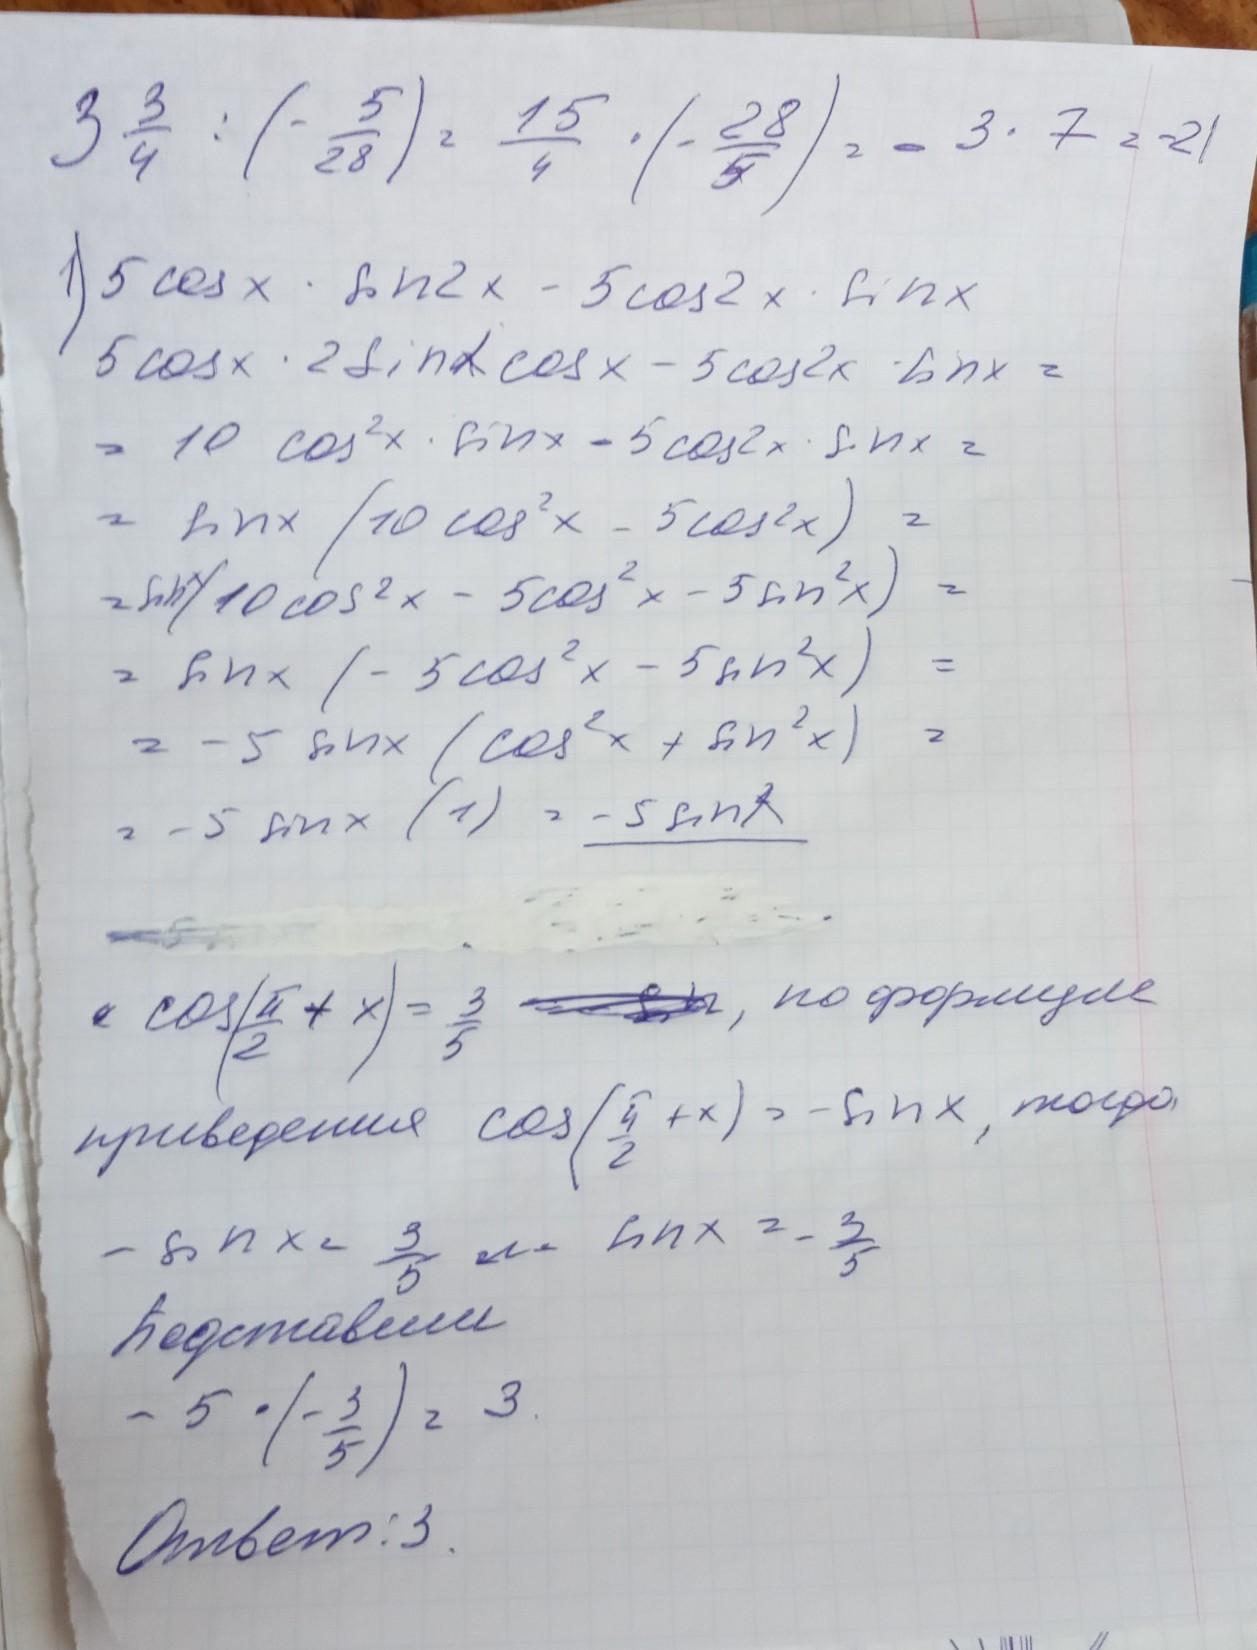 3 3/4 : (- 5/28) = 15/4 · (- 28/5) = - 3 · 7 = -21
1) 5 cos x · sin2x - 5cos2x · sinx
5cosx · 2 sinx cosx - 5cos2x · sinx =
= 10 cos²x · sinx - 5cos2x · sinx =
= sinx (10 cos²x - 5cos2x) =
= sinx (10cos²x - 5cos²x - 5sin²x) =
= sinx (- 5cos²x - 5sin²x) =
= - 5 sinx (cos²x + sin²x) =
= - 5 sinx (1) = - 5 sinx
cos(π/2 + x) = 3/5 , по формуле
приведения cos(π/2 + x) = - sinx, тогда
- sinx = 3/5 или sinx = - 3/5
Подставим
- 5 · (- 3/5) = 3.
Ответ: 3.